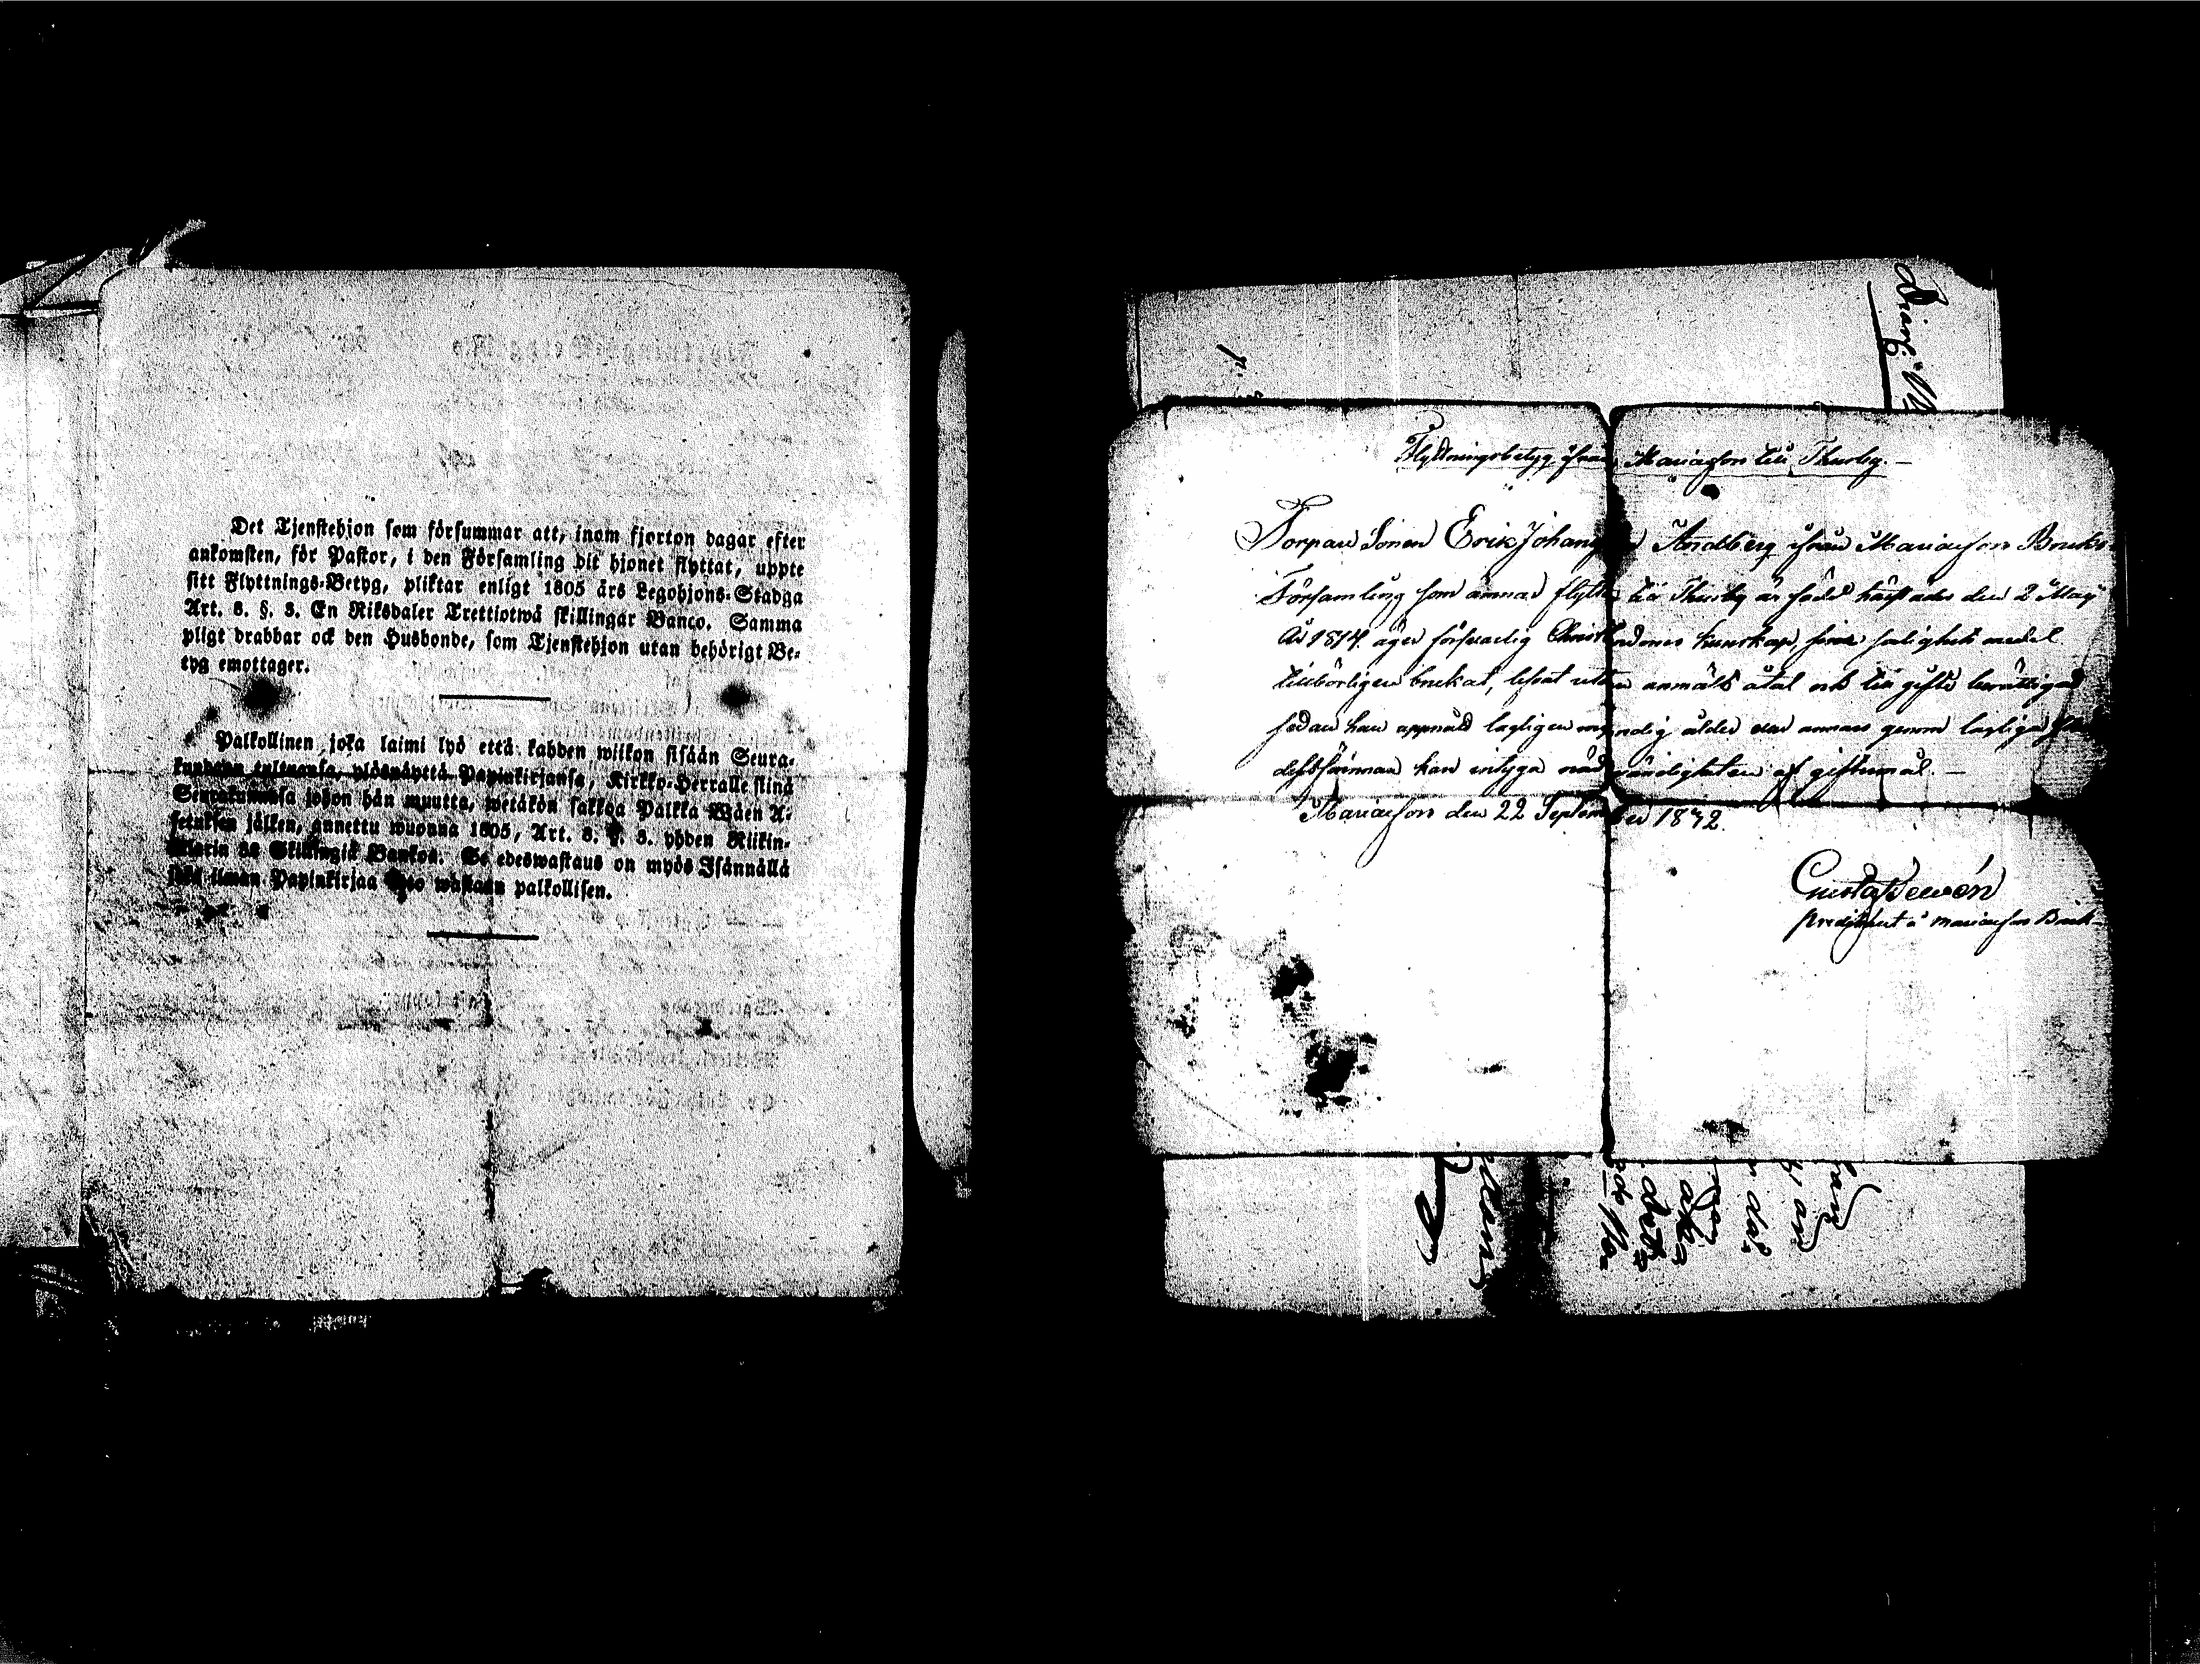 Det Tjenstehjon som försummar att, inom fjorton dagar efter
ankomsten, för Pastor, i den Församling dit hjonet flyttat, uppte
sitt Flyttnings-Betyg, pliktar enligt 1805 års Legohjons-Stadga
Art. 8. §. 3. En Riksdaler Trettiotwå skillingar Banco. Samma
pligt drabbar ock den Husbonde, som Tjenstehjon utan behörigt Be-
tyg emottager.
Palkollinen joka laimi lyö että kahden wiikon sisään Seura-
kundaan tulemansa, ylösnäyttä Papinkirjansa, Kirkko-Herralle siinä
Seurakunnasa johon hän muutta, wetäkön sakkoa Palkka Wäen A-
setuksen jälken, annettu wuonna 1805, Art. 8. §. 3. yhden Riikin-
Skillingiä Bankoa. Se edeswastaus on myös Isännällä
ilman Papinkirjaa palkollisen.
Diarii
Flyttningsbetyg ifrån Mariæfors till Thusby.
Torpare Sonen Erik Johan Andberg ifrån Mariæfors Bruks
Församling som ämnar flytta till Thusby är född härstädes den 2 Maij
År 1814. äger försvarlig Christendoms kunskap, sine salighets medel
tillbörligen brukat, lefvat utan anmäldt åtal och till gifte berättigad
sedan han uppnåd lagligen myndig ålder eller annars genom lagliga
kan intyga nödvändigheten af giftermål. —
Mariæfors den 22 September 1832.
Gustaf
Predikant å Mariæfors Bruk